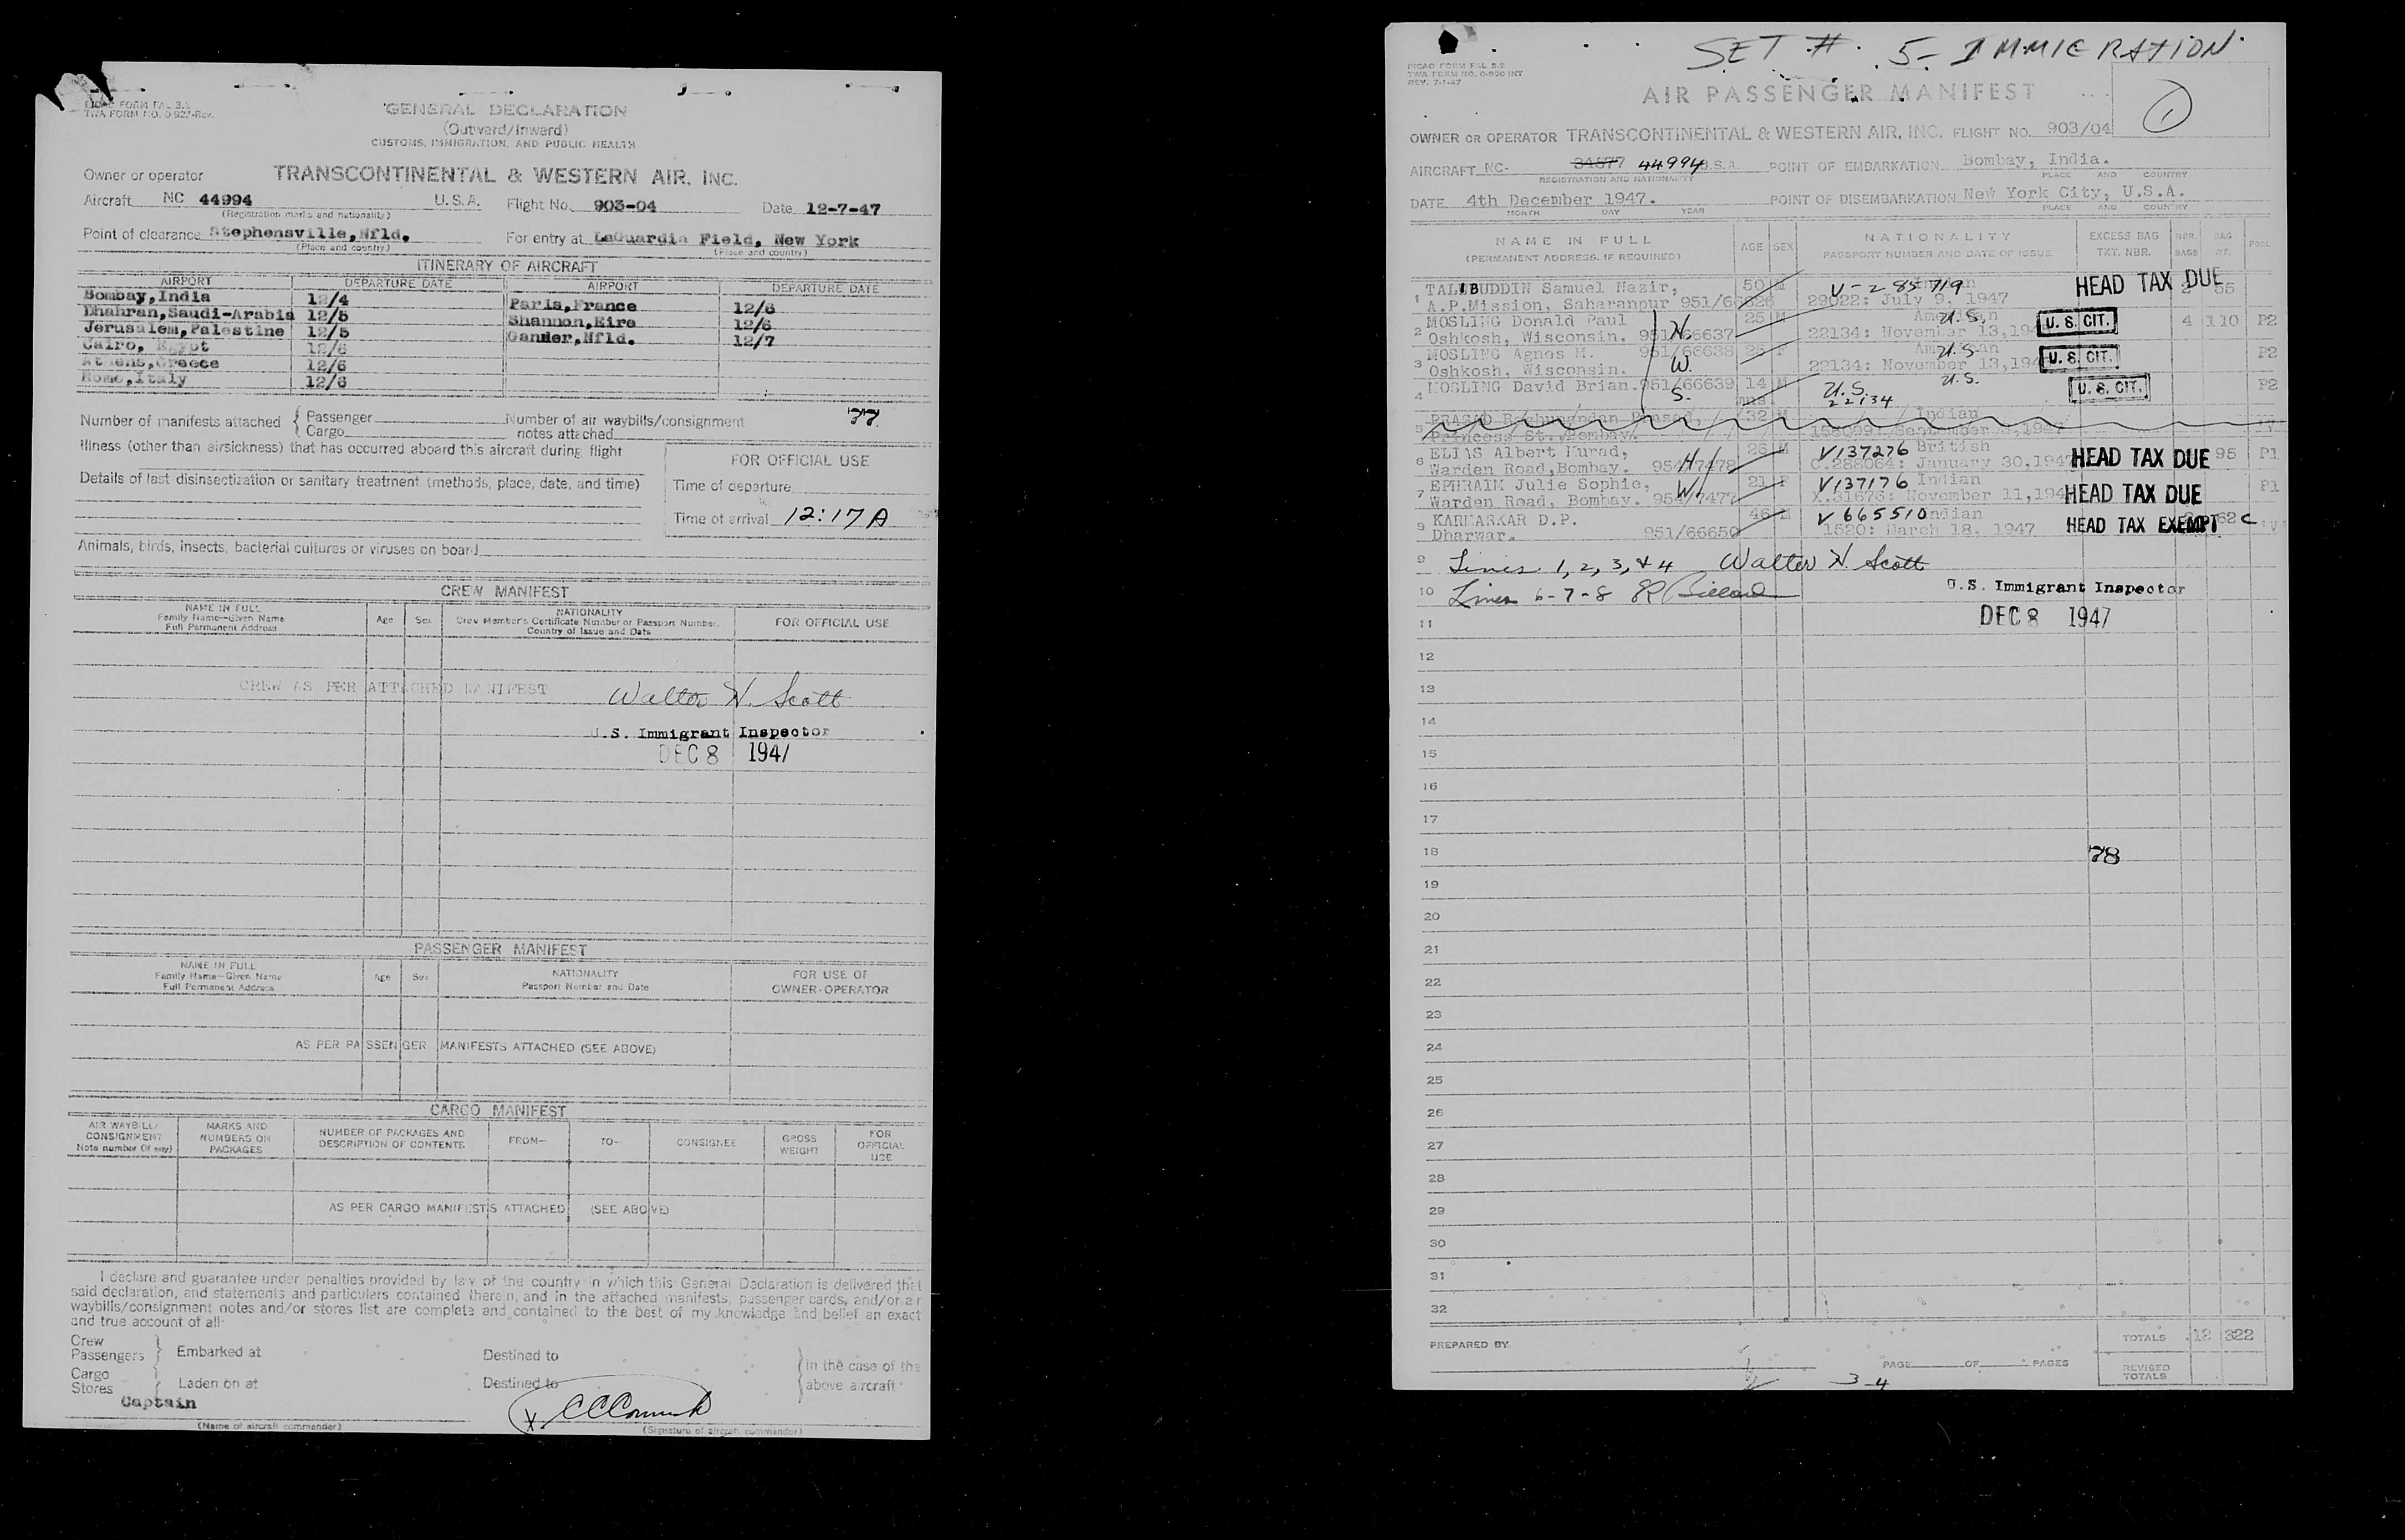 PICAO FORM FAL 3.1
TWA FORM NO. 0-927-Rev.
GENERAL DECLARATION
(Outward/Inward)
CUSTOMS, IMMIGRATION, AND PUBLIC HEALTH
Owner or operator TRANSCONTINENTAL & WESTERN AIR, INC.
Aircraft NC 44994 U.S.A. Flight No. 903-04 Date 12-7-47
(Registration marks and nationality)
Point of clearance Stephensville,Nfld. For entry at LaGuardia Field, New York
(Place and country) (Place and country)
ITINERARY OF AIRCRAFT
AIRPORT DEPARTURE DATE AIRPORT DEPARTURE DATE
Bombay,India 12/4 Paris,France 12/6
Dhahran,Saudi-Arabia 12/5 Shannon,Eire 12/6
Jerusalem,Palestine 12/5 Gander,Nfld. 12/7
Cairo, Egypt 12/6
Athens,Greece 12/6
Rome,Italy 12/6
Number of manifests attached { Passenger Number of air waybills/consignment 77
Cargo notes attached
Illness (other than airsickness) that has occurred aboard this aircraft during flight
FOR OFFICIAL USE
Details of last disinsectization or sanitary treatment (methods, place, date, and time)
Time of departure
Time of arrival 12:17 A
Animals, birds, insects, bacterial cultures or viruses on board
CREW MANIFEST
NAME IN FULL
Family Name—Given Name
Full Permanent Address
Age Sex
NATIONALITY
Crew Member's Certificate Number or Passport Number,
Country of Issue and Date
FOR OFFICIAL USE
CREW AS PER ATTACHED MANIFEST Walter H. Scott
U.S. Immigrant Inspector
DEC 8 1947
PASSENGER MANIFEST
NAME IN FULL
Family Name—Given Name
Full Permanent Address
Age Sex
NATIONALITY
Passport Number and Date
FOR USE OF
OWNER-OPERATOR
AS PER PASSENGER MANIFESTS ATTACHED (SEE ABOVE)
CARGO MANIFEST
AIR WAYBILL/
CONSIGNMENT
Note number (if any)
MARKS AND
NUMBERS ON
PACKAGES
NUMBER OF PACKAGES AND
DESCRIPTION OF CONTENTS
FROM— TO— CONSIGNEE
GROSS
WEIGHT
FOR
OFFICIAL
USE
AS PER CARGO MANIFESTS ATTACHED (SEE ABOVE)
I declare and guarantee under penalties provided by law of the country in which this General Declaration is delivered that
said declaration, and statements and particulars contained therein, and in the attached manifests, passenger cards, and/or air
waybills/consignment notes and/or stores list are complete and contained to the best of my knowledge and belief an exact
and true account of all:
Crew
Passengers } Embarked at Destined to
Cargo
Stores } Laden on at Destined to
} in the case of the
above aircraft
Captain
(Name of aircraft commander) (Signature of aircraft commander)
SET # 5- IMMIGRATION
PICAO FORM FAL 3.2
TWA FORM NO. 0-900 INT
REV. 7-1-47
AIR PASSENGER MANIFEST
1
OWNER OR OPERATOR TRANSCONTINENTAL & WESTERN AIR, INC. FLIGHT NO. 903/04
AIRCRAFT NC- 34577 44994 U.S.A. POINT OF EMBARKATION Bombay, India.
REGISTRATION AND NATIONALITY PLACE AND COUNTRY
DATE 4th December 1947. POINT OF DISEMBARKATION New York City, U.S.A.
MONTH DAY YEAR PLACE AND COUNTRY
NAME IN FULL AGE SEX NATIONALITY EXCESS BAG NBR. BAG POOL
(PERMANENT ADDRESS, IF REQUIRED) PASSPORT NUMBER AND DATE OF ISSUE TKT. NBR. BAGS WT.
1 TALIBUDDIN Samuel Nazir, 50 M V-285719 HEAD TAX DUE 55
A.P.Mission, Saharanpur 29022: July 9, 1947
2 MOSLING Donald Paul H. 25 M American U.S. U. S. CIT. 4 110 P2
Oshkosh, Wisconsin. 951/66637 22134: November 13,194
3 MOSLING Agnes M. 951/66638 W. F American U.S. U. S. CIT. P2
Oshkosh, Wisconsin. 22134: November 13,194
4 MOSLING David Brian. 951/66639 S. 14 mns. M U.S. U.S. U. S. CIT. P2
22134
5 PRASAD Raghunandan Prasad, 32 M Indian
Princess St., Bombay.
6 ELIAS Albert Murad, H 26 M V137276 British HEAD TAX DUE 95 P1
Warden Road,Bombay. 954/7478 C.288064: January 30,1947
7 EPHRAIM Julie Sophie, W. 21 F V137176 Indian HEAD TAX DUE P1
Warden Road, Bombay. 954/7477 X.31676: November 11,194
8 KARMARKAR D.P. 46 M V 665510 Indian HEAD TAX EXEMPT 62 C
Dharwar. 951/66650 1520: March 18, 1947
9 Lines 1, 2, 3, & 4 Walter H. Scott
10 Lines 6-7-8
U.S. Immigrant Inspector
11 DEC 8 1947
12
13
14
15
16
17
18 78
19
20
21
22
23
24
25
26
27
28
29
30
31
32
PREPARED BY TOTALS 12 322
PAGE OF PAGES REVISED
TOTALS
3-4